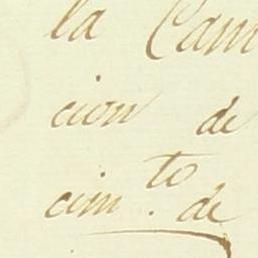 la Cam
cion de
cim.to de